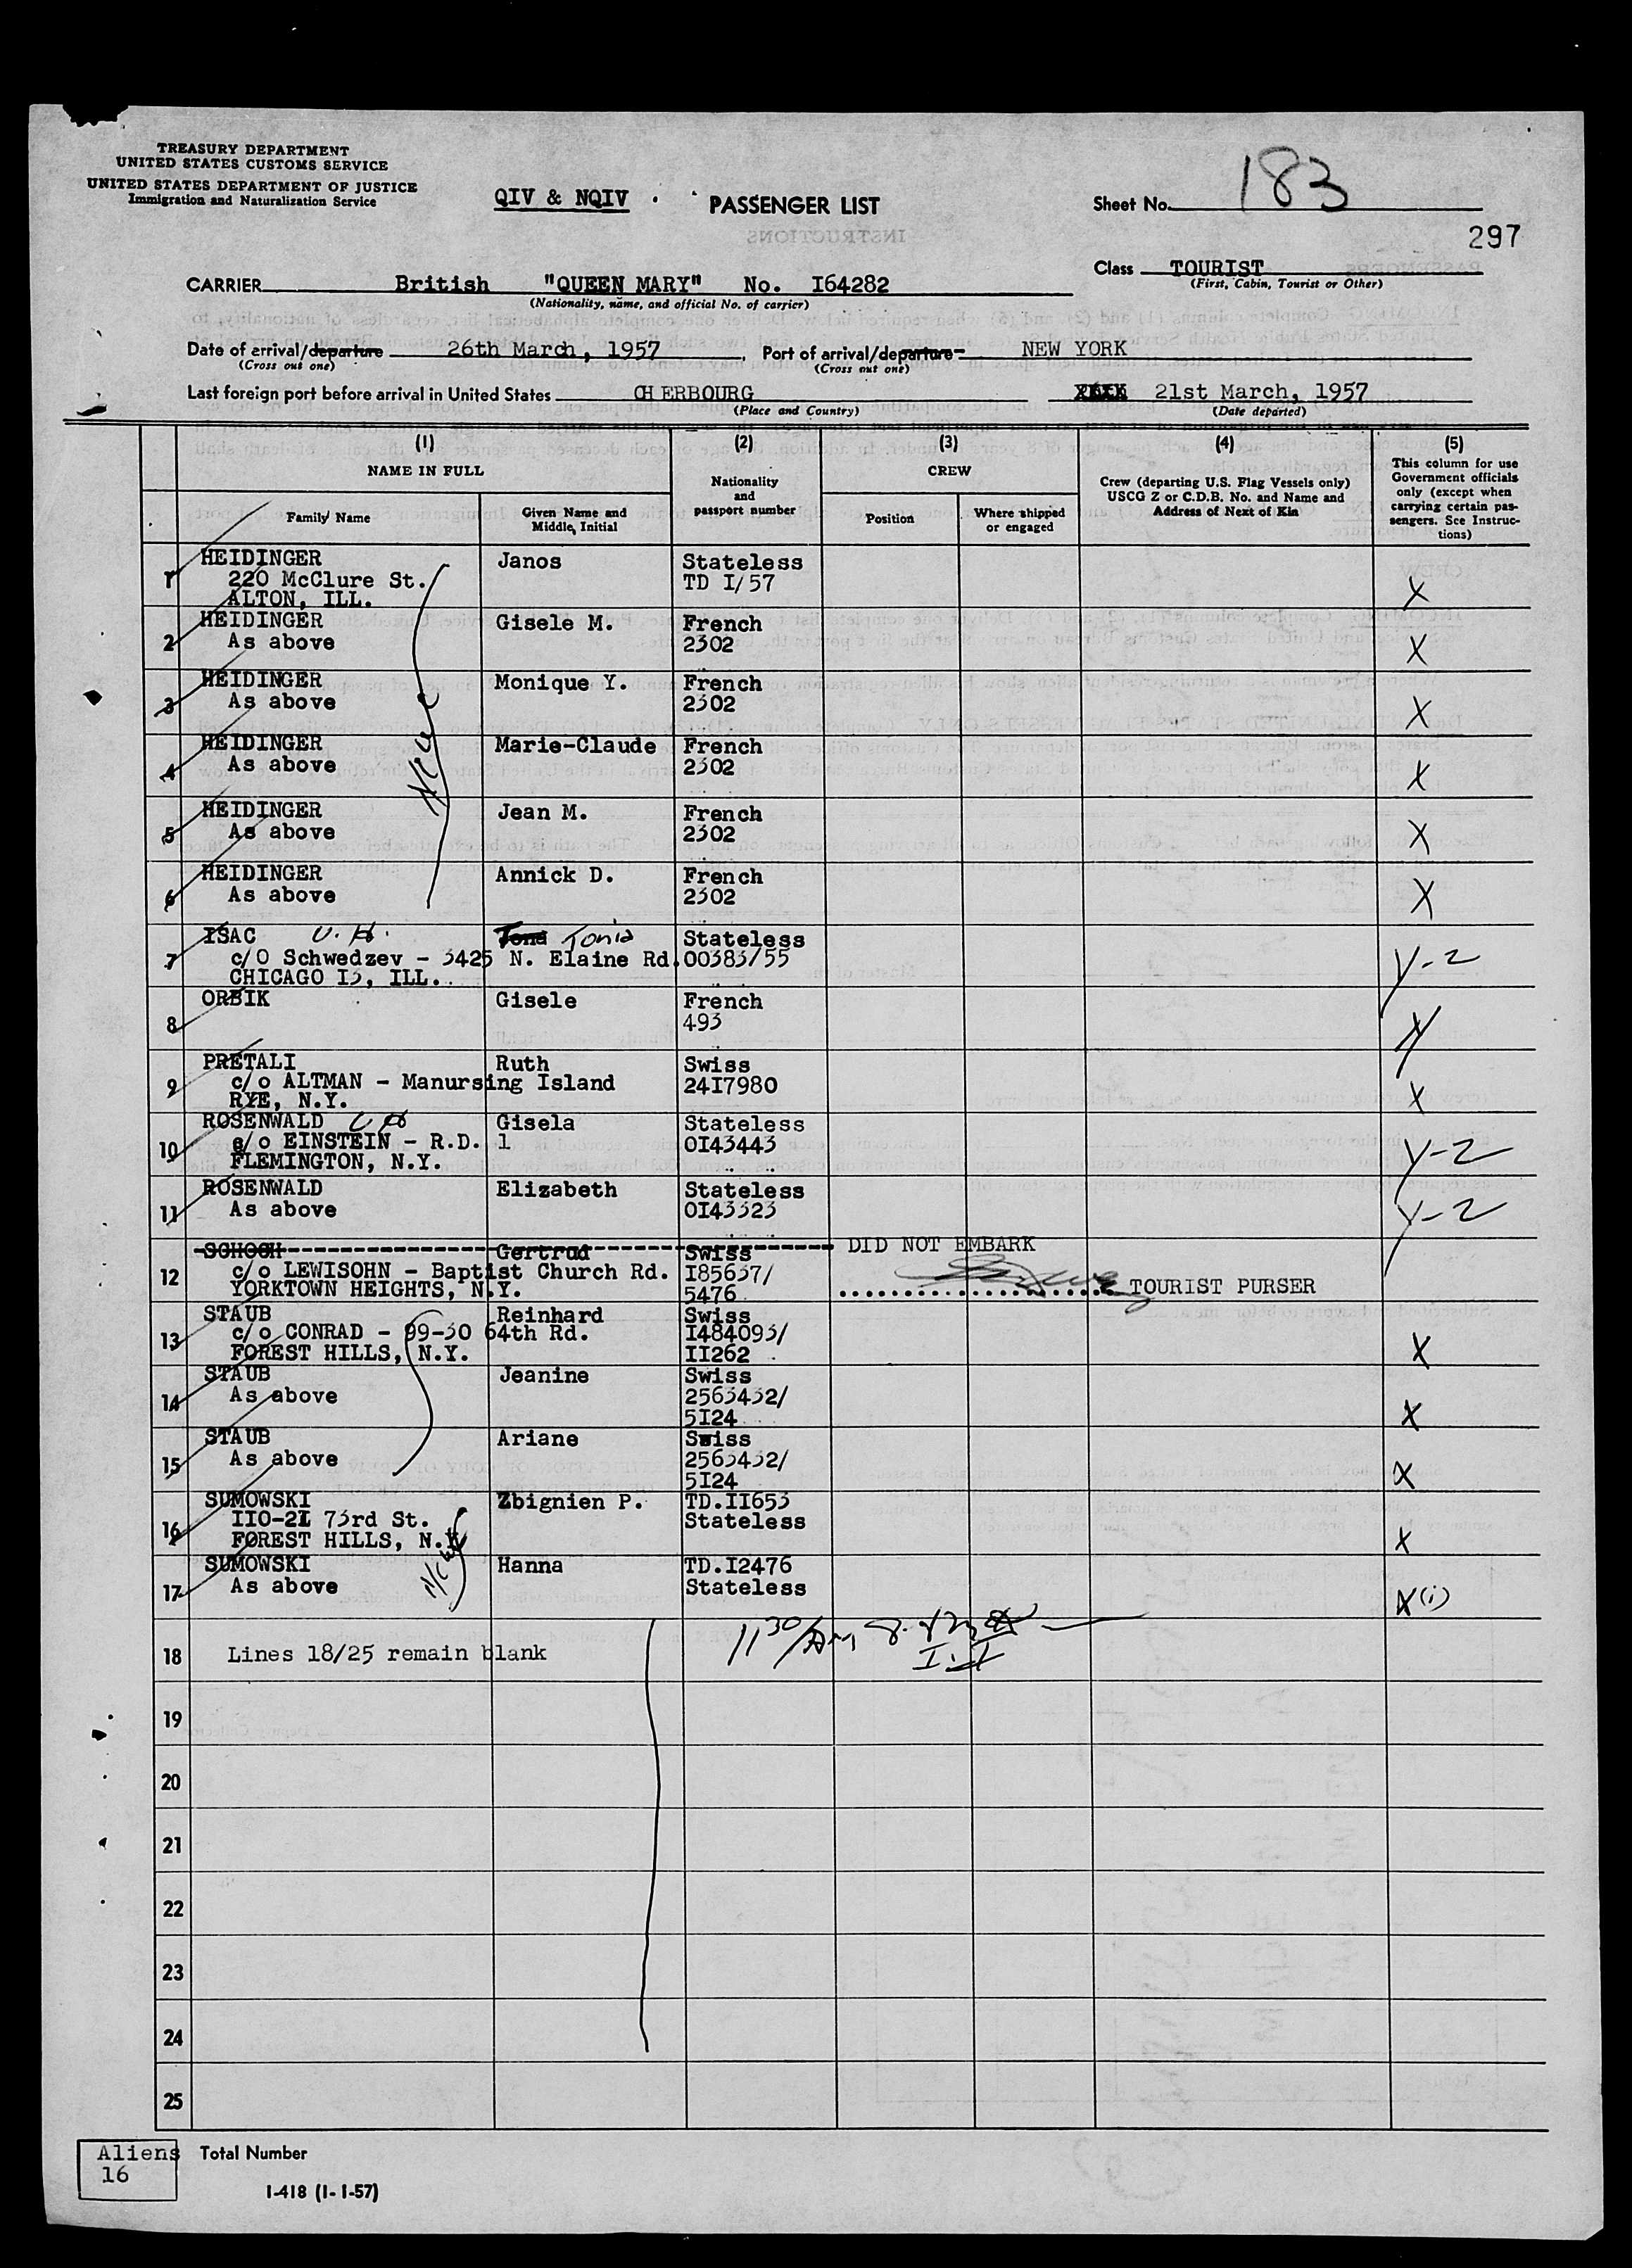 TREASURY DEPARTMENT
UNITED STATES CUSTOMS SERVICE
UNITED STATES DEPARTMENT OF JUSTICE
Immigration and Naturalization Service
QIV & NQIV
PASSENGER LIST
Sheet No. 183
297
Class TOURIST
(First, Cabin, Tourist or Other)
CARRIER British "QUEEN MARY" No. I64282
(Nationality, name, and official No. of carrier)
Date of arrival/departure 26th March, 1957, Port of arrival/departure NEW YORK
(Cross out one) (Cross out one)
Last foreign port before arrival in United States CHERBOURG 21st March, 1957
(Place and Country) (Date departed)
(1) (2) (3) (4) (5)
NAME IN FULL
Family Name
Given Name and Middle Initial
Nationality and passport number
CREW
Position
Where shipped or engaged
Crew (departing U.S. Flag Vessels only)
USCG Z or C.D.B. No. and Name and
Address of Next of Kin
This column for use
Government officials
only (except when
carrying certain pas-
sengers. See Instruc-
tions)
1 HEIDINGER Janos Stateless
220 McClure St. TD I/57 X
ALTON, ILL.
2 HEIDINGER Gisele M. French
As above 2302 X
3 HEIDINGER Monique Y. French
As above 2302 X
4 HEIDINGER Marie-Claude French
As above 2302 X
5 HEIDINGER Jean M. French
As above 2302 X
6 HEIDINGER Annick D. French
As above 2302 X
7 ISAC Tona Tonia Stateless
c/O Schwedzev - 3425 N. Elaine Rd. 00383/55 Y-2
CHICAGO I3, ILL.
8 ORBIK Gisele French
493
9 PRETALI Ruth Swiss
c/o ALTMAN - Manursing Island 24I7980 X
RYE, N.Y.
10 ROSENWALD Gisela Stateless
c/o EINSTEIN - R.D. 1 OI43443 Y-2
FLEMINGTON, N.Y.
11 ROSENWALD Elizabeth Stateless
As above OI43323 Y-2
12 SCHOCH Gertrud Swiss DID NOT EMBARK
c/o LEWISOHN - Baptist Church Rd. I85637/
YORKTOWN HEIGHTS, N.Y. 5476 TOURIST PURSER
13 STAUB Reinhard Swiss
c/o CONRAD - 99-30 64th Rd. I484093/
FOREST HILLS, N.Y. II262 X
14 STAUB Jeanine Swiss
As above 2563432/
5I24 X
15 STAUB Ariane Swiss
As above 2563432/
5I24 X
16 SUMOWSKI Zbignien P. TD.II653
IIO-2I 73rd St. Stateless
FOREST HILLS, N.Y. X
17 SUMOWSKI Hanna TD.I2476
As above Stateless X(i)
18 Lines 18/25 remain blank
19
20
21
22
23
24
25
Aliens
16
Total Number
I-418 (I-I-57)